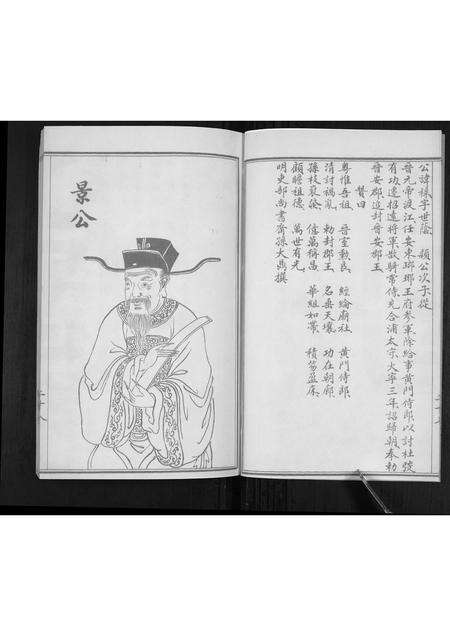 公諱祿字世蔭 穎公次子從
晉元帝渡江任安東瑯琊王府參軍除給事黃門侍郎以討杜弢
有功遷招遠將軍散騎常侍允合浦太守大寧三年詔歸朝奉勅
晉安郡追封晉安郡王
贊曰
粵惟吾祖 晉室勳良 經綸廟社 黃門侍郎
清討禍亂 勅封郡王 名垂天壤 功在朝廊
孫枝蕃衍 億萬稱昌 華組如帶 積笏盈床
顧瞻祖德 萬世有光
明吏部尚書裔孫大 撰
景公